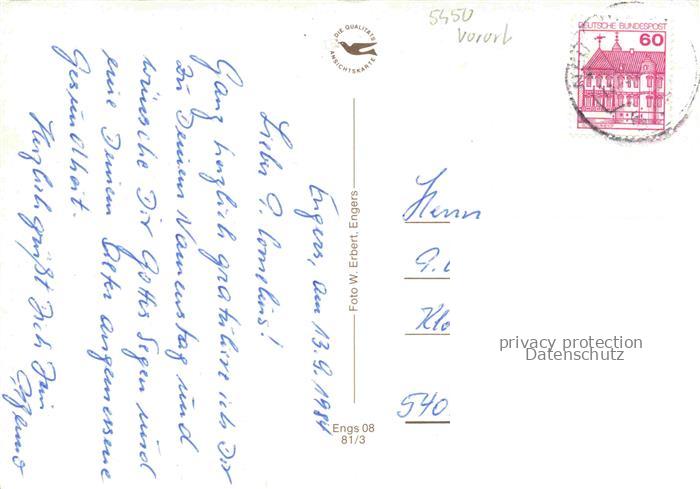 Engers, am 13.9.1984
Lieber P. Cornelius!
Ganz herzlich gratuliere ich Dir
zu Deinem Namenstag und
wünsche Dir Gottes Segen und
eine Deinem Alter angemessene
Gesundheit.
Herzlich grüßt Dich Dein
DIE QUALITÄTS
ANSICHTSKARTE
Foto W. Erbert, Engers
Engs 08
81/3
5450
Vorort
DEUTSCHE BUNDESPOST
60
Herrn
P.
Klo
540
privacy protection
Datenschutz